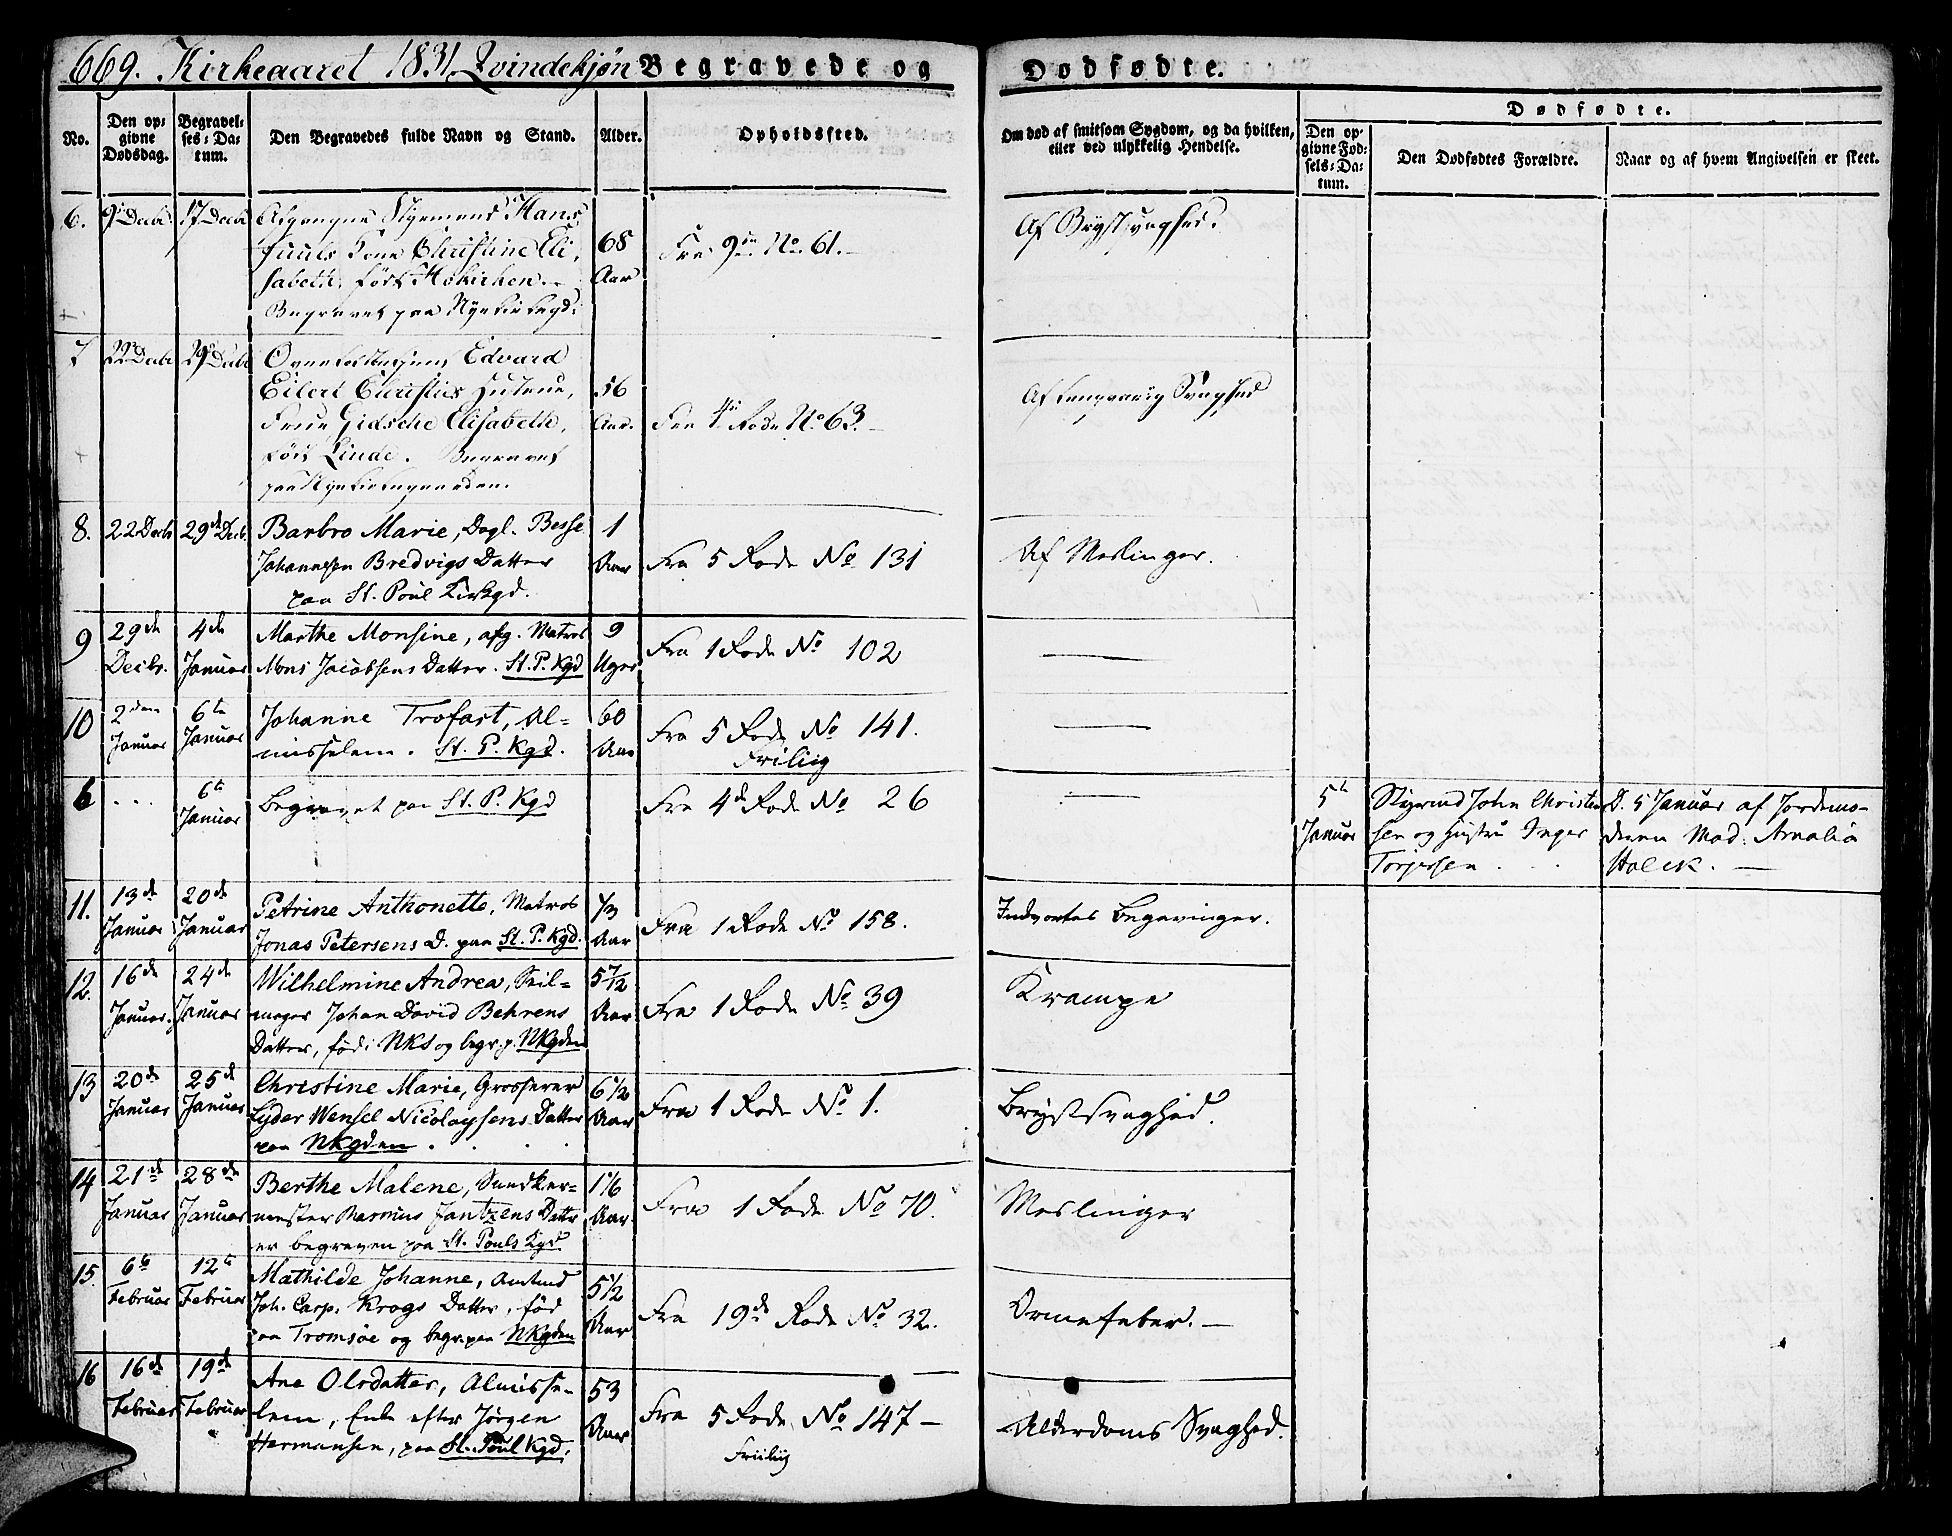 669. Kirkeaaret 1831. Qvindekjøn Begravede og Dødfødte.
No.
Den opgivne Dødsdag.
Begravelses-Datum.
Den Begravedes fulde Navn og Stand.
Alder.
Opholdssted.
Om død af smitsom Sygdom, og da hvilken, eller ved ulykkelig Hendelse.
Dødfødte.
Den opgivne Fødsels-Datum.
Den Dødfødtes Forældre.
Naar og af hvem Angivelsen er skeet.
6. 9de Decbr 17 Decbr Afgangne Styrmand Hans 68 Aar Fra 9de No. 61. Af Brystsvaghed.
Juuls Kone Christine Eli-
sabeth, født Hokirchen.
Begravet paa Nyekirkegd.
7 22 Decbr 29 Decbr Edvard 56 Aar. Fra 4de Rode No 63. Af langvarig Svaghed
Eilert Christies
Frue Gidsche Elisabeth,
født Linde. Begravet
paa Nyekirkegaarden.
8. 22 Decbr 29de Decb. Barbro Marie, Dagl. Besse 1 Aar Fra 5 Rode No 131 Af Meslinger.
Johannesen Bredvigs Datter
paa St. Poul Kirkgd.
9 29de Decbr. 4de Januar Marthe Monsine, afg. Matros 9 Uger Fra 1 Rode No 102
Mons Jacobsens Datter. St. P. Kgd
10 2den Januar 6te Januar Johanne Trofast, Al- 60 Aar Fra 5 Rode No 141.
misselem. St. P. Kgd. Friliig
6 . . . 6te Januar Begravet paa St. P. Kgd Fra 4de Rode No 26 5te Januar Styrmd John Christen- D. 5 Januar af Jordemo-
sen og Hustru Inger deren Mad: Amalia
Torjersen . Holck. —
11. 13de Januar 20de Januar Petrine Anthonette, Matros 73 Aar Fra 1 Rode No 158. Indvortes Begevinger.
Jonas Petersens D. paa St. P. Kgd.
12. 16de Januar. 24de Januar Wilhelmine Andrea, Seil- 5 7/12 Aar Fra 1 Rode No 39 Krampe
mager Johan David Behrens
Datter, fød i NKS og begr. p. NKgden
13 20de Januar 25de Januar Christine Marie, Grosserer 6 1/2 Aar Fra 1 Rode No 1. Brystsvaghed.
Lyder Wensel Nicolaysens Datter
paa NKgden . . .
14 21de Januar 28de Januar Berthe Malene, Sundker- 1 1/6 Aar. Fra 1 Rode No 70. Meslinger
mester Rasmus Jantzens Datter
er begraven paa St. Pouls Kgd
15. 6te Februar 12te Februar Mathilde Johanne, Amtmd 5 1/2 Aar Fra 19de Rode No 32. Ormefeber. —
Joh. Carp. Krogs Datter, fød
paa Tromsøe og begr. paa NKgden
16 16de Februar 19de Februar Ane Olsdatter, Almisse- 53 Aar Fra 5 Rode No 147 — Alderdoms Svaghed.
lem, Enke efter Jørgen
Hermansen, paa St. Poul Kgd. Friliig